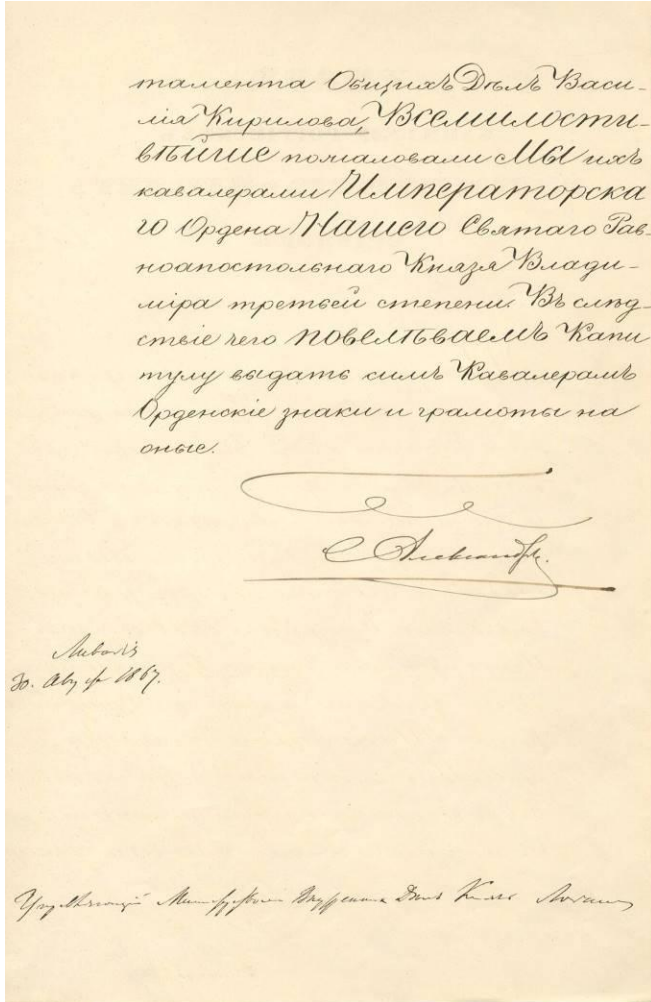 тамента Общихъ Дѣлъ Васи-
лія Кирилова, Всемилости-
вѣйше пожаловали МЫ ихъ
кавалерами Императорска
го Ордена Нашего Святаго Рав-
ноапостольнаго Князя Влади-
міра третьей степени. Въ слѣд-
ствіе чего повелѣваемъ Капи
тулу выдать симъ Кавалерамъ
Орденскіе знаки и грамоты на
оные.
Александръ.
Ливадія
30. Августа 1867.
Управляющій Министерствомъ Внутреннихъ Дѣлъ Князь